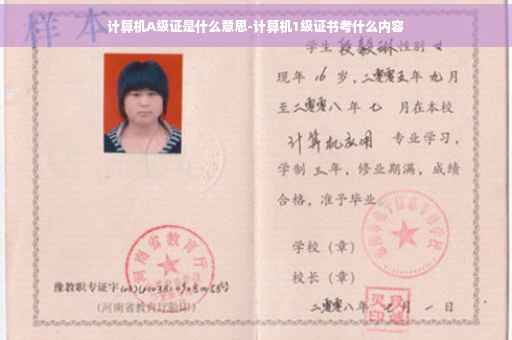 样本
计算机A级证是什么意思-计算机1级证书考什么内容
学生段毅琳性别女
现年16岁，二零零五年九月
至二零零八年七月在本校
计算机应用专业学习，
学制三年，修业期满，成绩
合格，准予毕业。
学校（章）
校长（章）
二零零八年 月一日
河南省教育厅
豫教职专证字
号
（河南省教育厅验印）